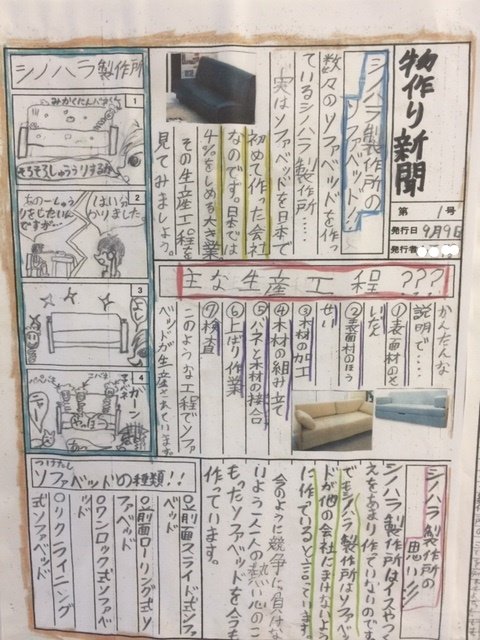 物作り新聞
第 1号
発行日 9月9日
発行者
シノハラ製作所の
ソファベッド!!
数々のソファベッドを作っ
ているシノハラ製作所……
実はソファベッドを日本で
初めて作った会社
なのです。日本では
4%をしめる大企業
その生産工程を
見てみましょう。
主な生産工程???
かんたんな
説明で……
①表面材のさ
いたん
②表面材のほう
せい
③木材の加工
④木材の組み立て
⑤バネと木材の接合
⑥上ばり作業
⑦検査
このような工程でソファ
ベッドが生産されています。
シノハラ製作所の
思い!!
シノハラ製作所はイスやつく
えをあまり作っていないのです。
でもシノハラ製作所はソファベッ
ドが他の会社にまけないよう
に作っていると言っています。
今のように競争に負けな
いよう一人一人の熱い心のこ
もったソファベッドを今も
作っています。
つけたし
ソファベッドの種類!!
○前面スライド式ソファ
ベッド
○前面ローリング式ソ
ファベッド
○ワンロック式ソファベ
ッド
○リクライニング
式ソファベッド
シノハラ製作所
1
そろそろしゅうりするか
2
はい分
かりました。
あのーしゅう
りをしたいん
ですが…
3
よし
4
ガーン